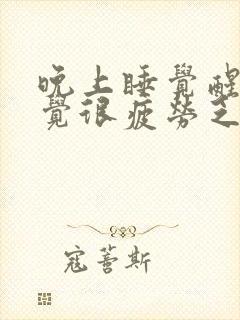 晚上睡覺醒
覺很疲勞乏
寇蒼斯